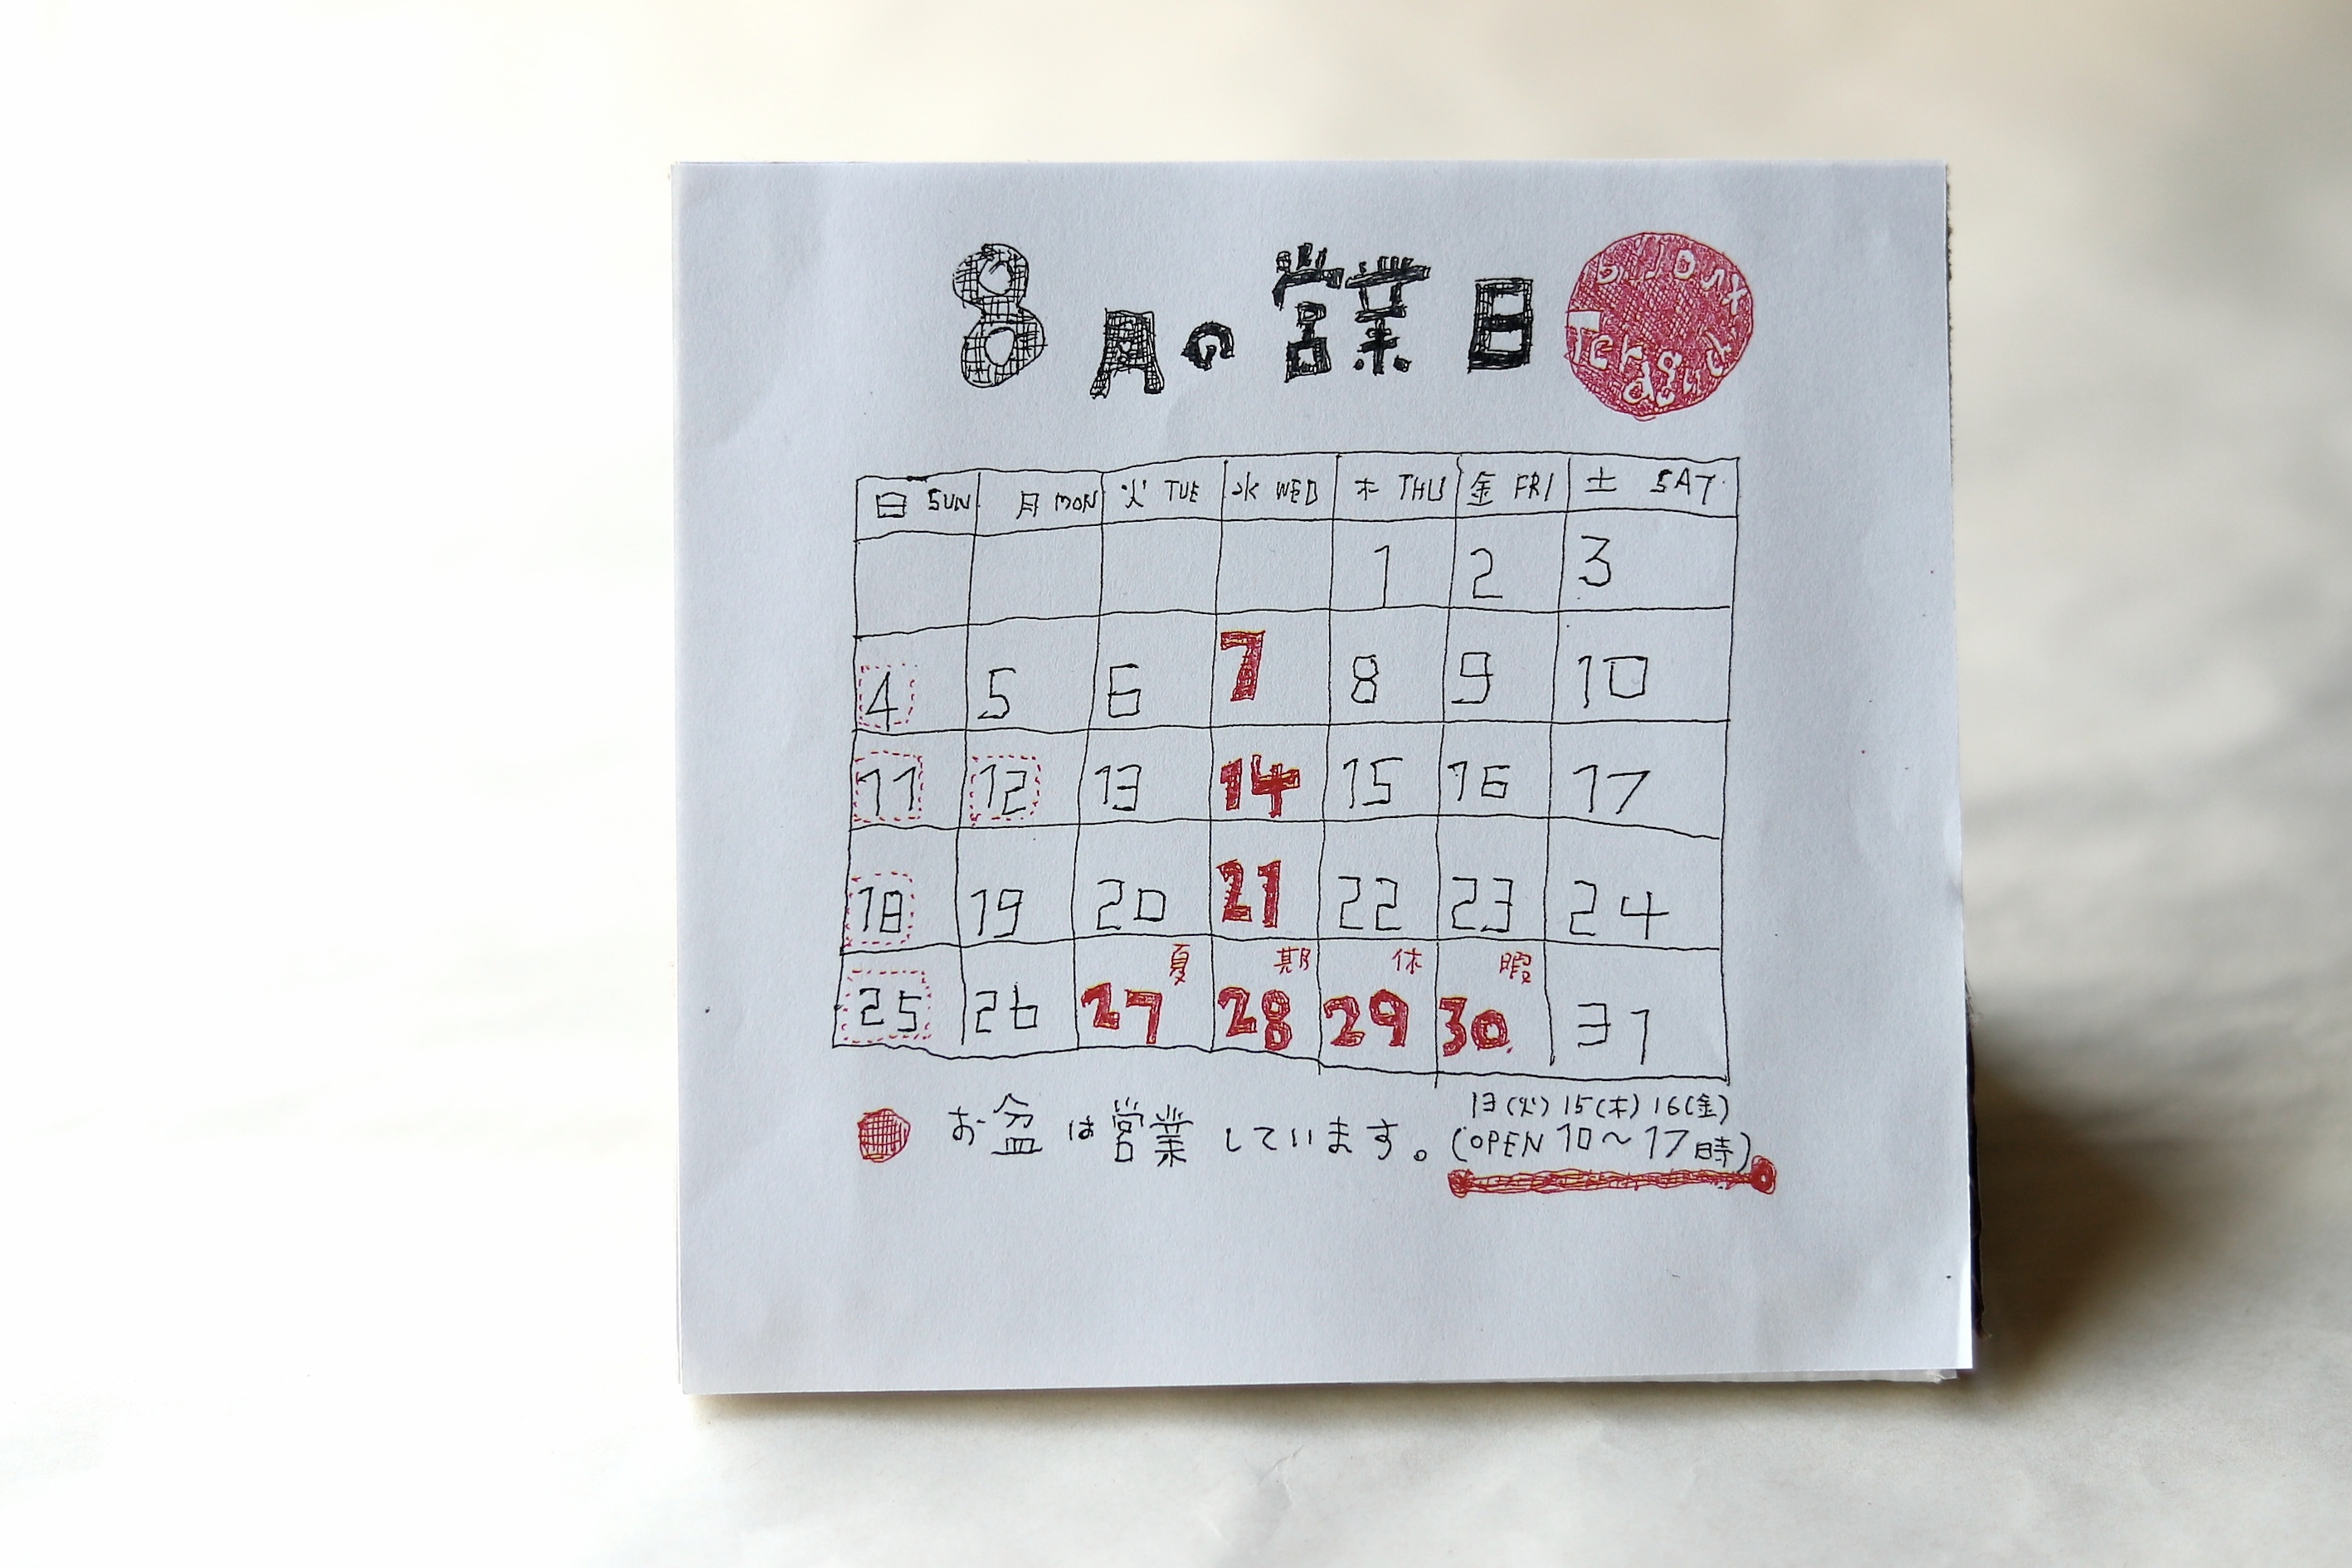 8月の営業日
bijoux
Teraguchi
日 SUN 月 MON 火 TUE 水 WED 木 THU 金 FRI 土 SAT
1 2 3
4 5 6 7 8 9 10
11 12 13 14 15 16 17
18 19 20 21 22 23 24
夏 期 休 暇
25 26 27 28 29 30 31
13(火) 15(木) 16(金)
お盆は営業しています。(OPEN 10〜17時)